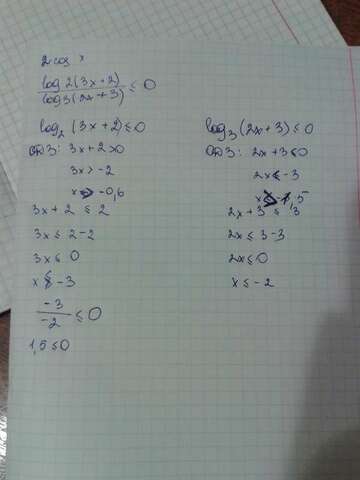 2 cos x
log2(3x+2)/log3(2x+3) ≤ 0
log₂(3x+2) ≤ 0
ОДЗ: 3x+2>0
3x>-2
-0,6
3x+2 ≤ 2
3x ≤ 2-2
3x ≤ 0
x ≤ -3
-3/-2 ≤ 0
1,5 ≤ 0
log₃(2x+3) ≤ 0
ОДЗ: 2x+3 ≤ 0
2x ≤ -3
2x+3 ≤ 3
2x ≤ 3-3
2x ≤ 0
x ≤ -2